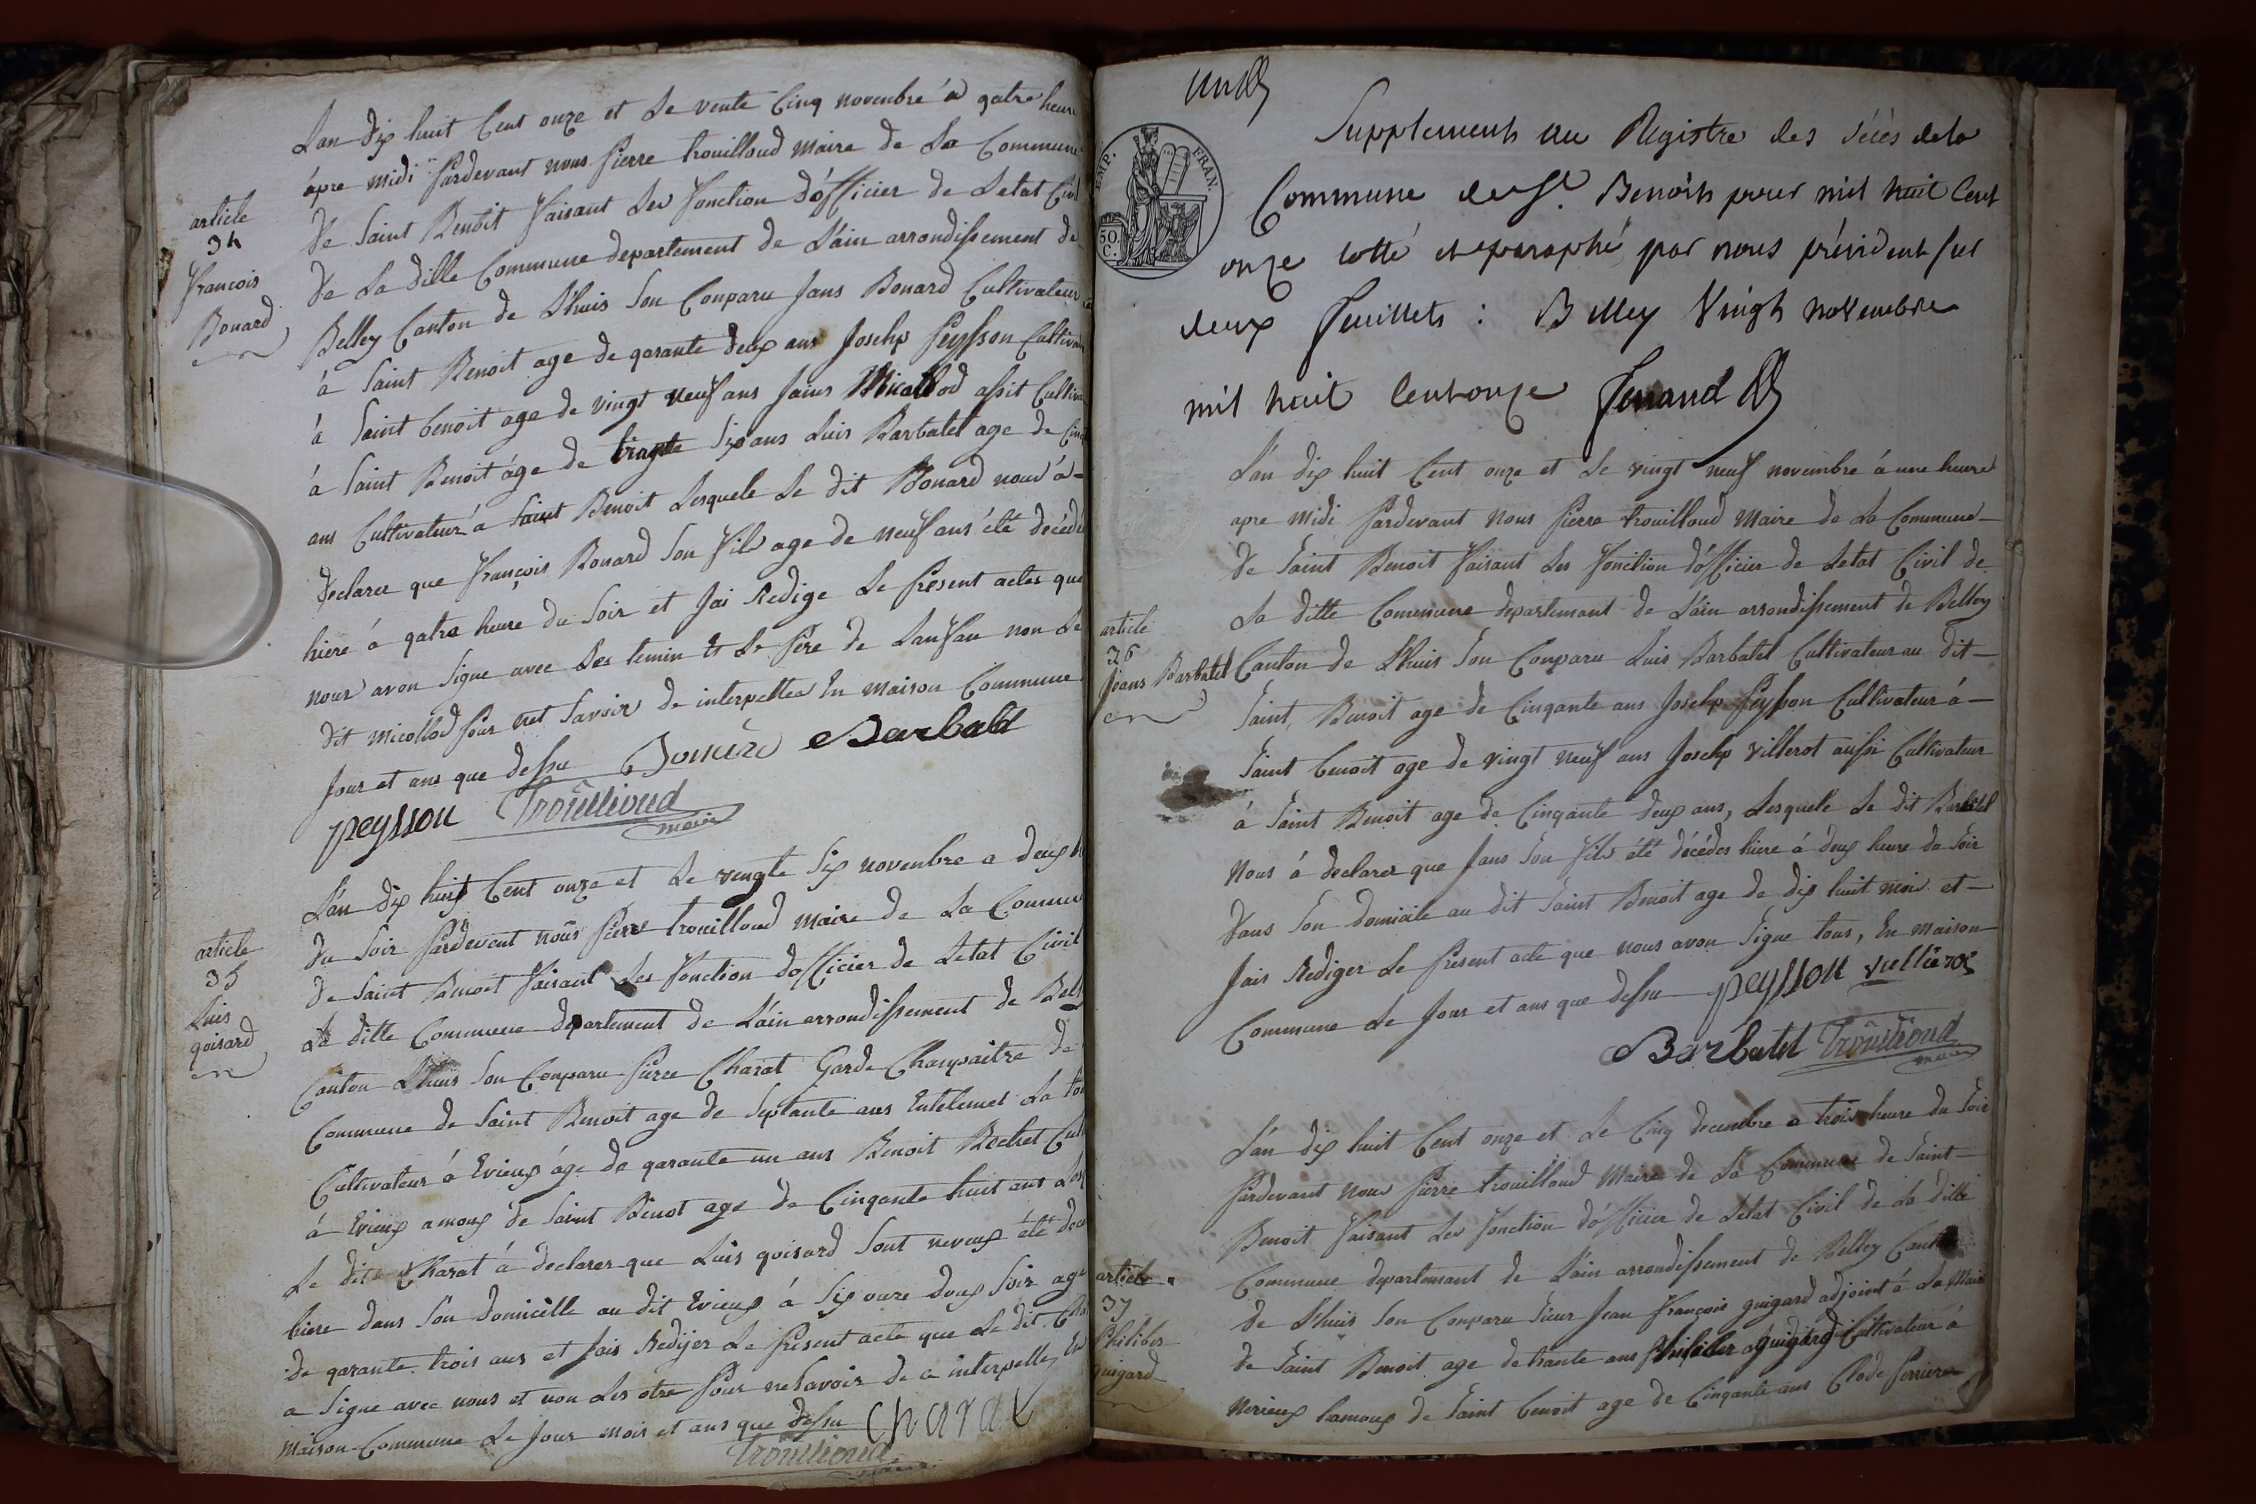 Lan dix huit Cent onze et Le vente Cinq novenbre à qatre heure
apre midi pardevant nous pierre trouilloud maire de La Commune
article
34
francois
Bonard
de Saint Benoit faisant Les fonction d'officier de Letat Civil
de La ditte Commune departement de L'ain arrondissement de
Belley Canton de Lhuis Son Conparu Jans Bonard Cultivateur
à Saint Benoit age de qarante deux ans Joselp peysson Cultivateur
à Saint benoit age de vingt neuf ans Jains Micollod assit Cultiva
à Saint Benoit àge de trante Six ans Luis Barbatet age de Cin
ans Cultivateur à Saint Benoit Lesquele Le dit Bonard nous à
declarer que françois Bonard Son fils age de neuf ans été décédé
hiere à qatre heure du Soir et Jai Redige Le present actes que
nous avon Signe avec Les temin et Le pére de Lanfan non Le
dit micollod pour net Savoir de interpelles En maison Commune
Jour et ans que dessu Bonard Barbatet
peysson Trouilloud
maire
L'an dix huit Cent onze et Le vengte Six novenbre a deux h
du Soir pardevent nous pierre trouilloud maire de La Commune
article
35
Luis
goisard
de Saint Benoit faisant Les fonction dofficier de Letat Civil
La ditte Commune departement de L'ain arrondissement de Bell
Canton Lhuis Son Conparu pierre Charat Garde Chanpaitre de
Commune de Saint Benoit age de Septante ans Entelemet La
Cultivateur à Evieux àge de qarante un ans Benoit Bochet Cul
à Evieux amoux de Saint Binot age de Cinqante huit ant Les
Le dite Charat à declarer que Luis goisard Sont neveux été dece
hiere dans Son domicille au dit Evieux à Six oure doux Soir age
de qarante trois ans et Jais Redijer Le present acte que Le dit Cha
a Signe avec nous et non Les otre pour ne Savoir de a interpelley En
maison Commune Le Jour mois et ans que dessu Charat
Trouilloud
maire
un
Supplement au Registre des décès de la
Commune de St. Benoit pour mil huit Cent
onze cotté et paraphé par nous président sur
deux feuillets : Belley Vingt novembre
mil huit Cent onze
EMP. FRAN.
50.
C.
L'an dix huit Cent onze et Le vingt neuf novembre à une heure
apre midi pardevant nous pierre trouilloud maire de La Commune
de Saint Benoit faisant Les fonction d'officier de Letat Civil de
La ditte Commune departemant de L'ain arrondissement de Belley
article
36
Jeans Barbatet
Canton de Lhuis Son Conparu Luis Barbatet Cultivateur au dit
Saint Benoit age de Cinqante ans Joselp peysson Cultivateur à
Saint benoit age de vingt neuf ans Joselp villerot aussi Cultivateur
à Saint Benoit age de Cinqante deux ans, Lesquele Le dit Barbatet
nous à declarer que Jans Son fils été décédes hiere à deux heure du Soir
dans Son domicile au dit Saint Benoit age de dix huit mois et
Jais Rediger Le present acte que nous avon Signe tous, En maison
Commune Le Jour et ans que dessu peysson
Barbatet Trouilloud
maire
L'an dix huit Cent onze et Le Cinq decembre a trois heure du Soir
pardevant nous pierre trouilloud maire de La Commune de Saint
Benoit faisant Les fonction d'officier de Letat Civil de La ditte
Commune departemant de L'ain arrondissement de Belley Canton
article
37
Philiber
guigard
de Lhuis Son Conparu Sieur Jean françois guigard adjoint à La Mair
de Saint Benoit age de trante ans Philiber guigard Cultivateur à
verieux hamoux de Saint benoit age de Cinqante ans Clode perriere